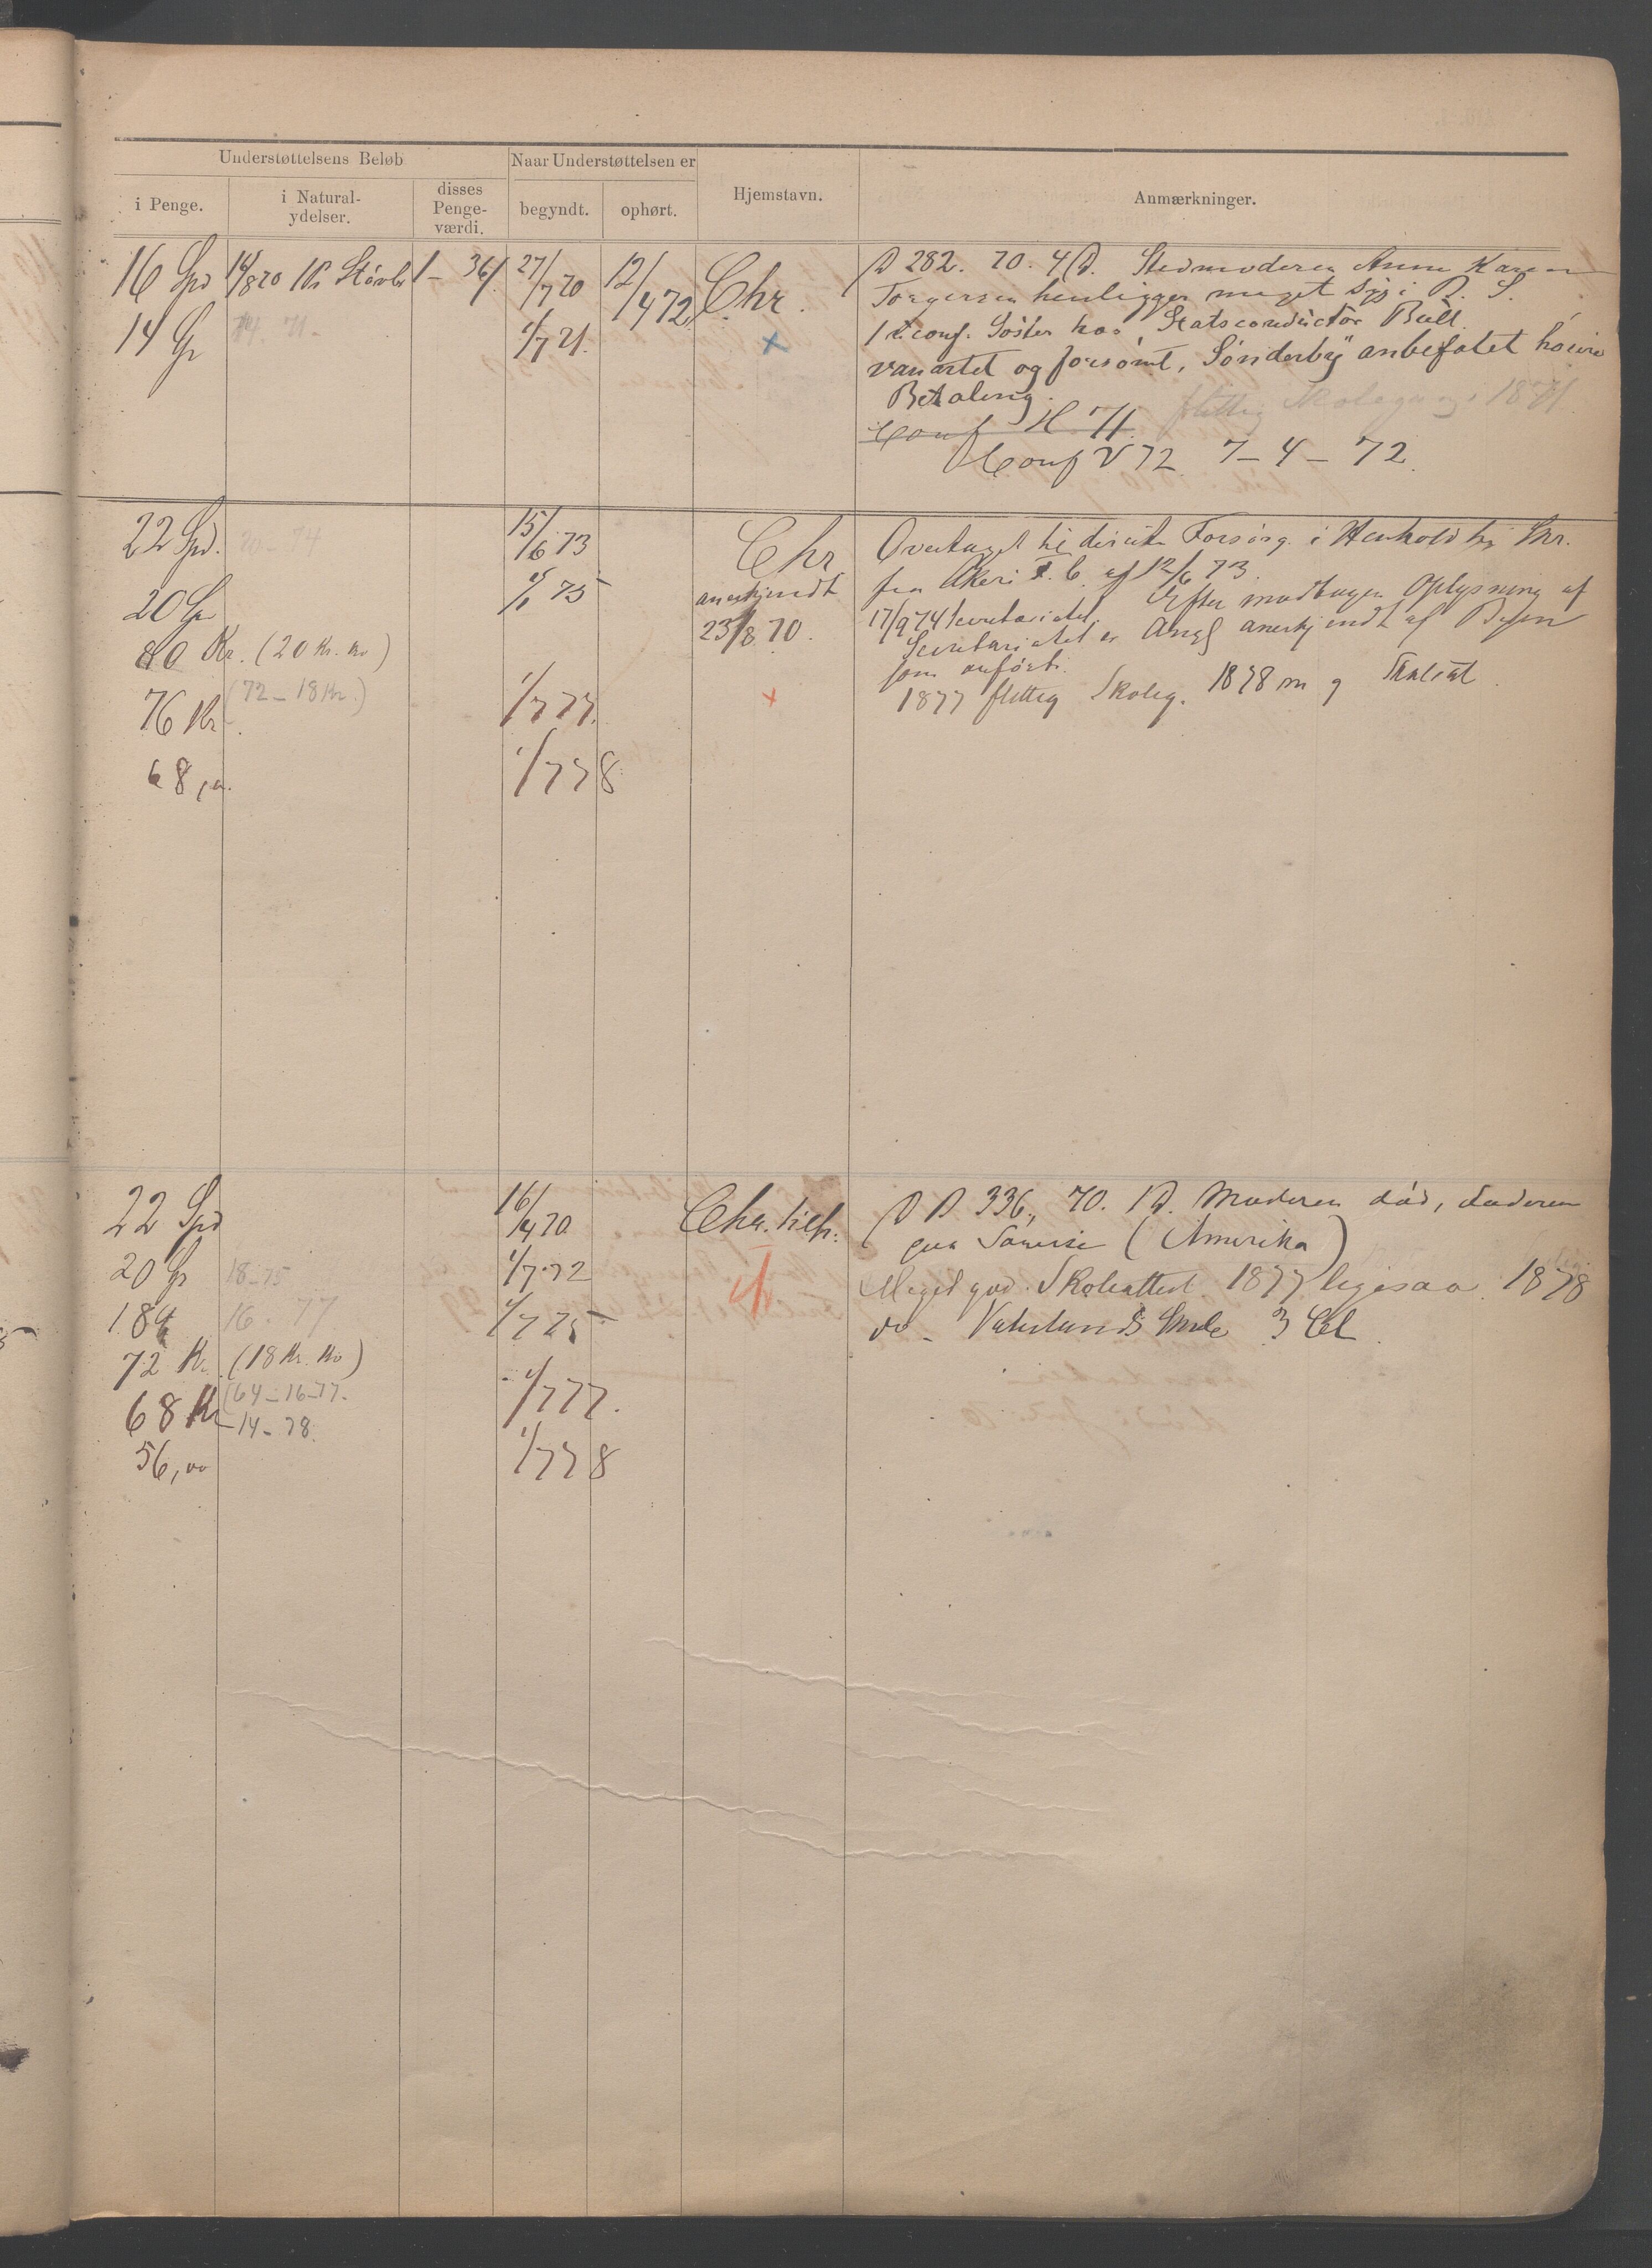 Understøttelsens Beløb
Naar Understøttelsen er
i Penge.
i Natural-
ydelser.
disses
Penge-
værdi.
begyndt.
ophørt.
Hjemstavn.
Anmærkninger.
16 Spd 14/8 70 1 Pr Støvler 1 - 36 27/7 70 12/4 72 Chr.
14 71 - 1/7 71.
282. 70. 4 Stedmoderen Anne Karen
Torgersen henligger meget syg i R. S.
1 uconf. Søster hos Statsconductor Bull.
vanartet og forsømt, Sønderby anbefalet høiere
Betaling.
flittig Skolegang i 1871
Conf H 71.
Conf V 72 7-4-72.
22 Spd. 20-74 15/6 73 Chr
20 1/1 75 anerkjendt
80 Kr. (20 Kr. Kv) 23/8 70.
76 Kr. (72-18 Kr.) 1/7 77.
68, 1/7 78
Overtaget til Forsørg. i Henhold til Skr.
fra Akers F. C. af 12/6 73.
17/9 74 Secretariatet. Efter modtagen Oplysning af
Secretariatet er anerkjendt af
som anført.
1877 flittig Skoleg. 1878 m g
22 Spd 16/4 70 Chr.
20 18-75 1/7 72
18 16-77 1/7 75
72 Kr. (18 Kr. Kv)
68 Kr (64-16-77- 1/7 77.
-14-78.
56,00 1/7 78
336, 70. Moderen død, Faderen
paa (Amerika)
Meget god Skoleattest 1877 ligesaa 1878
do - Vaterlands Skole 3 Cl